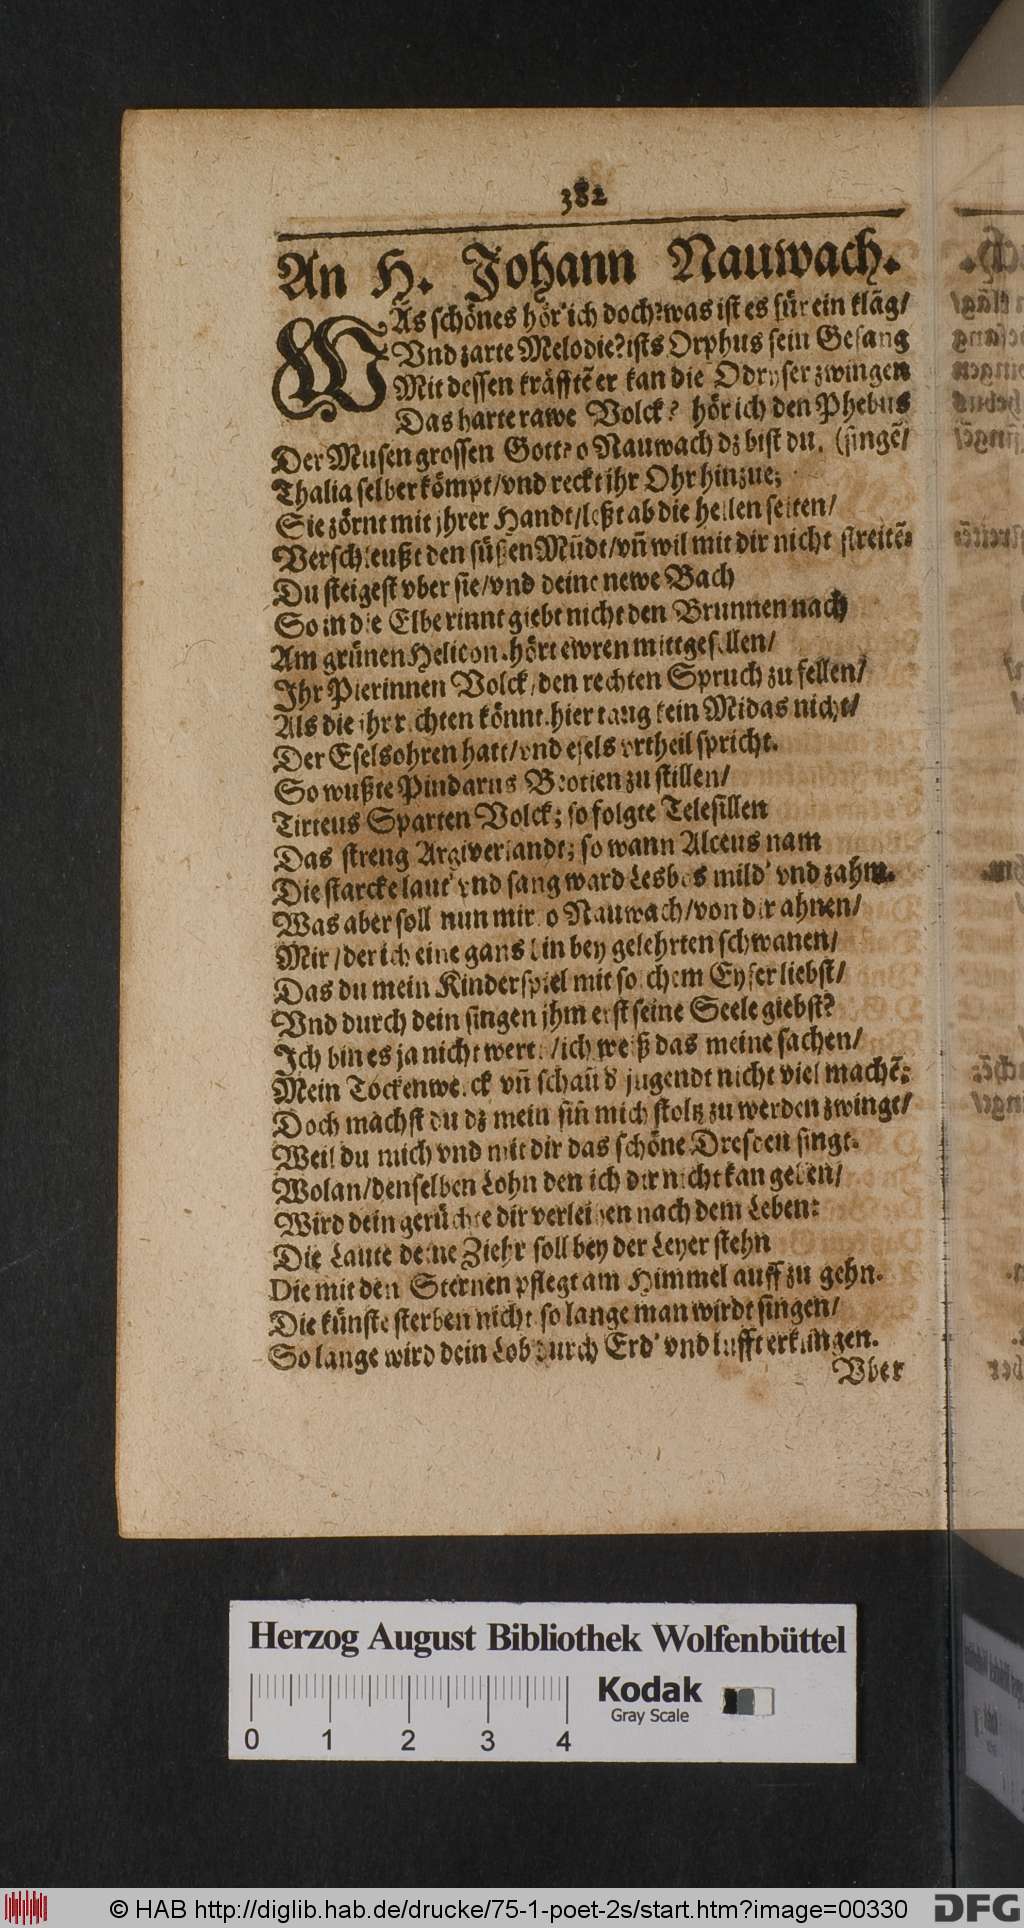 382
An H. Johann Nauwach.
WAs schönes hör' ich doch? was ist es für ein kläg/
Vnd zarte Melodie? ists Orphus sein Gesang
Mit dessen kräfftē er kan die Odryser zwingen
Das harte rawe Volck? hör ich den Phebus
Der Musen grossen Gott? o Nauwach dz bist du. (singē/
Thalia selber kömpt/vnd reckt ihr Ohr hinzue;
Sie zörnt mit jhrer Handt/leßt ab die hellen seiten/
Verschleußt den süßen Mūdt/vn̄ wil mit dir nicht streitē:
Du steigest vber sie/vnd deine newe Bach
So in die Elbe rinnt giebt nicht den Brunnen nach
Am grünen Helicon. hört ewren mittgesellen/
Ihr Pierinnen Volck/den rechten Spruch zu fellen/
Als die ihr richten könnt. hier taug kein Midas nicht/
Der Eselsohren hatt/vnd esels vrtheil spricht.
So wußte Pindarus Beotien zu stillen/
Tirteus Sparten Volck; so folgte Telesillen
Das streng Argiverlandt; so wann Alceus nam
Die starcke laut' vnd sang ward Lesbos mild' vnd zahm.
Was aber soll nun mir/o Nauwach/von dir ahnen/
Mir/der ich eine gans bin bey gelehrten schwanen/
Das du mein Kinderspiel mit solchem Eyfer liebst/
Vnd durch dein singen jhm erst seine Seele giebst?
Ich bin es ja nicht wert/ich weiß das meine sachen/
Mein Tockenwerck vn̄ schaū d' jugendt nicht viel machē:
Doch machst du dz mein sin̄ mich stoltz zu werden zwingt/
Weil du mich vnd mit dir das schöne Dresden singt.
Wolan/denselben Lohn den ich dir nicht kan geben/
Wird dein gerüchte dir verleihen nach dem Leben:
Die Laute deine Ziehr soll bey der Leyer stehn
Die mit den Sternen pflegt am Himmel auff zu gehn.
Die künste sterben nicht. so lange man wirdt singen/
So lange wird dein Lob durch Erd' vnd lufft erklingen.
Vber
Herzog August Bibliothek Wolfenbüttel
0 1 2 3 4
Kodak
Gray Scale
© HAB http://diglib.hab.de/drucke/75-1-poet-2s/start.htm?image=00330
DFG